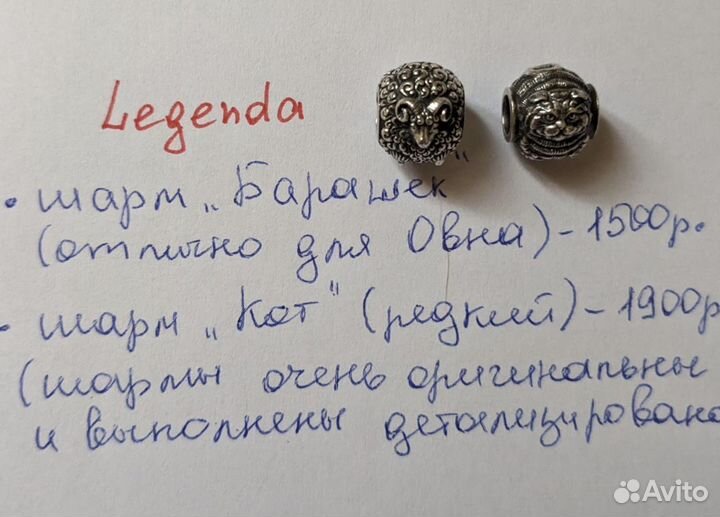 Legenda
• шарм „Барашек"
(отлично для Овна) - 1500р.
• шарм „Кот" (редкий) - 1900р
(шармы очень оригинальны
и выполнены детализировано
Avito